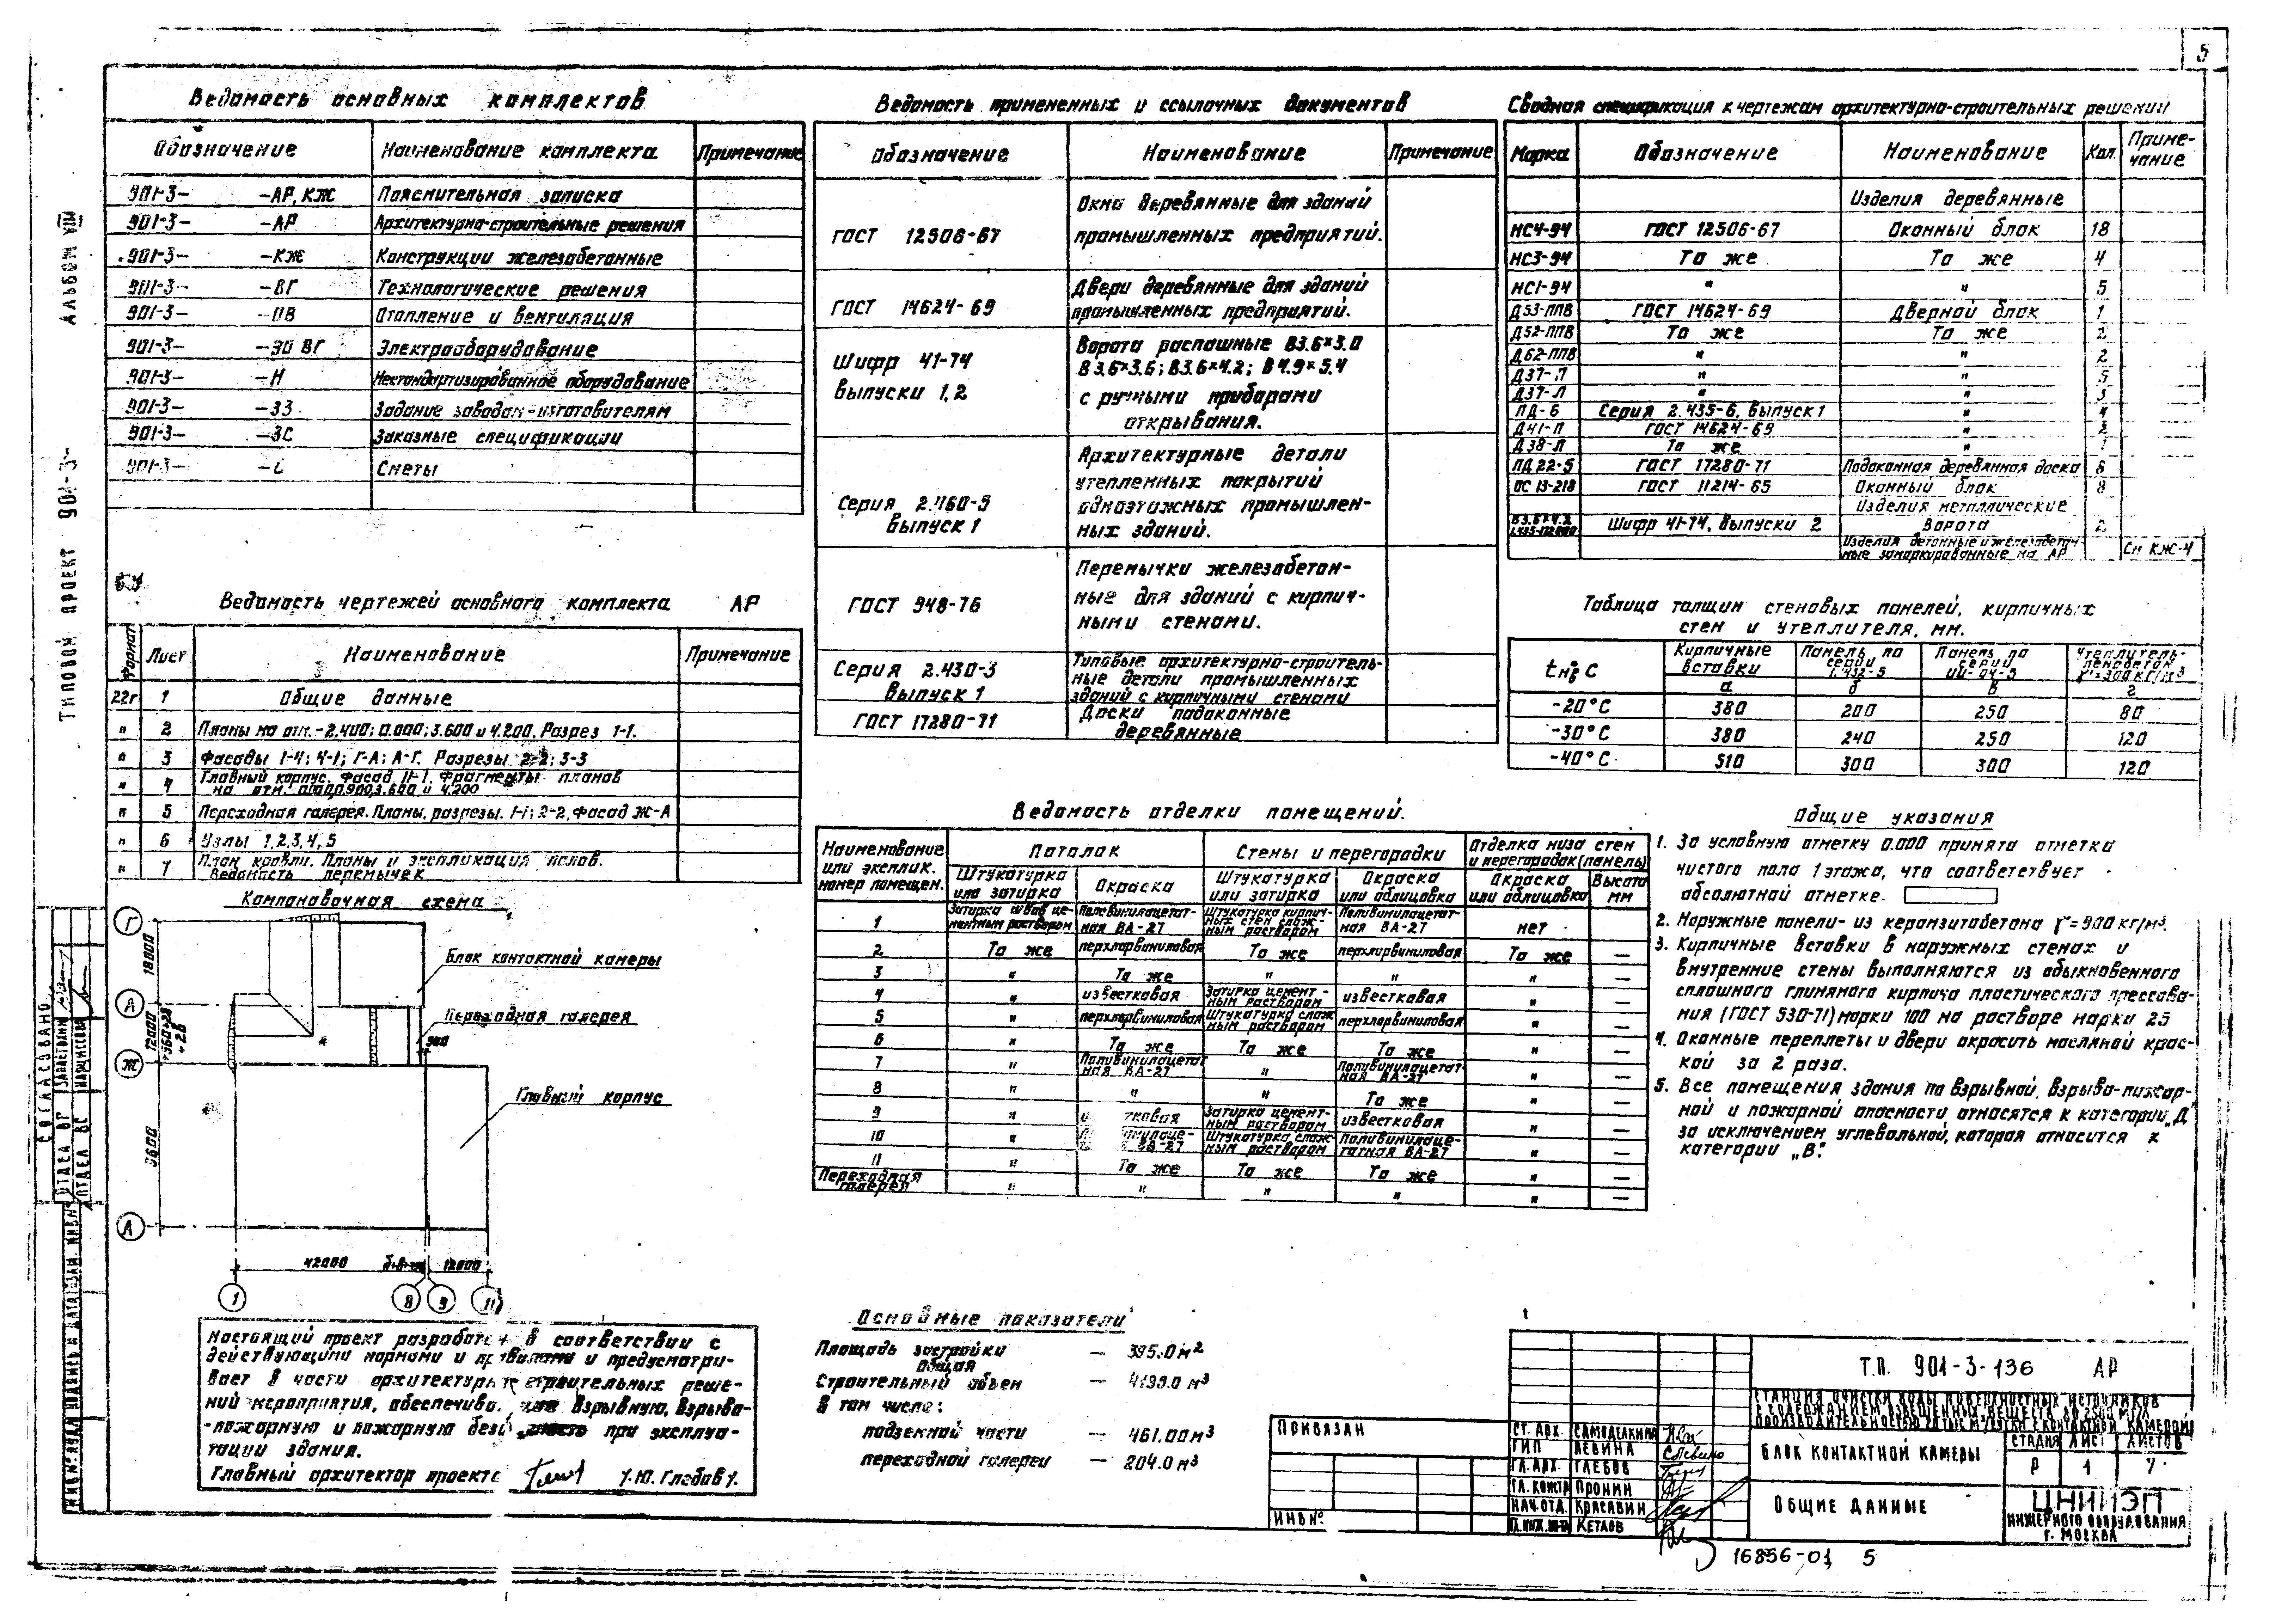 5
Альбом VIII
Типовой проект 901-3-
Ведомость основных комплектов
Обозначение Наименование комплекта Примечание
901-3- -АР, КЖ Пояснительная записка
901-3- -АР Архитектурно-строительные решения
901-3- -КЖ Конструкции железобетонные
901-3- -ВГ Технологические решения
901-3- -ОВ Отопление и вентиляция
901-3- -ЭО ВГ Электрооборудование
901-3- -Н Нестандартизированное оборудование
901-3- -ЗЗ Задание заводам-изготовителям
901-3- -ЗС Заказные спецификации
901-3- -С Сметы
Ведомость чертежей основного комплекта АР
Формат Лист Наименование Примечание
22г 1 Общие данные
" 2 Планы на отм.-2.400; 0.000; 3.600 и 4.200. Разрез 1-1.
" 3 Фасады 1-4; 4-1; Г-А; А-Г. Разрезы 2-2; 3-3
" 4 Главный корпус. Фасад 11-1. Фрагменты планов
на отм. 3.600 и 4.200
" 5 Переходная галерея. Планы, разрезы. 1-1; 2-2, Фасад Ж-А
" 6 Узлы 1,2,3,4,5
" 7 План кровли. Планы и экспликация полов.
Ведомость перемычек
Компановочная схема
Г
18000
А
12000
Ж
3600
А
Блок контактной камеры
Переходная галерея
Главный корпус
42000 12000
1 8 9 11
Настоящий проект разработан в соответствии с
действующими нормами и правилами и предусматри-
вает в части архитектурно строительных реше-
ний мероприятия, обеспечива. взрывную, взрыво-
-пожарную и пожарную при эксплуа-
тации здания.
Главный архитектор проекта Глебов
Ведомость примененных и ссылочных документов
Обозначение Наименование Примечание
Окна деревянные для зданий
ГОСТ 12506-67 промышленных предприятий.
Двери деревянные для зданий
ГОСТ 14624-69 промышленных предприятий.
Шифр 41-74
выпуски 1,2
Ворота распашные В3.6×3.0
В3.6×3.6; В3.6×4.2; В4.9×5.4
с ручными приборами
открывания.
Серия 2.460-5
Выпуск 1
Архитектурные детали
утепленных покрытий
одноэтажных промышлен-
ных зданий.
ГОСТ 948-76
Перемычки железобетон-
ные для зданий с кирпич-
ными стенами.
Серия 2.430-3
Выпуск 1
Типовые архитектурно-строитель-
ные детали промышленных
зданий с кирпичными стенами
ГОСТ 17280-71 Доски подоконные
деревянные
Сводная спецификация к чертежам архитектурно-строительных решений
Марка Обозначение Наименование Кол. Приме-
чание
Изделия деревянные
НС4-94 ГОСТ 12506-67 Оконный блок 18
НС3-94 То же То же 4
НС1-94 " " 5
Д53-ППВ ГОСТ 14624-69 Дверной блок 1
Д52-ППВ То же То же 2
Д62-ППВ " " 2
Д37-П " " 5
Д37-Л " " 3
ПД-6 Серия 2.435-6, выпуск 1 " 4
Д41-П ГОСТ 14624-69 " 2
Д38-Л То же " 1
ПД22-5 ГОСТ 17280-71 Подоконная деревянная доска 8
ОС 13-218 ГОСТ 11214-65 Оконный блок 8
Изделия металлические
В3.6×4.2 Шифр 41-74, Выпуски 2 Ворота 2
Изделия бетонные и железобетон-
ные замаркированные на АР См КЖ-4
Таблица толщин стеновых панелей, кирпичных
стен и утеплителя, мм.
tн°С Кирпичные
вставки Панель по
серии
1.432-5 Панель по
серии
ИИ-04-5 Утеплитель-
пенобетон
γ=300 кг/м³
а б в г
-20°С 380 200 250 80
-30°С 380 240 250 120
-40°С 510 300 300 120
Ведомость отделки помещений.
Наименование
или эксплик.
номер помещен. Потолок Стены и перегородки Отделка низа стен
и перегородок (панель)
Штукатурка
или затирка Окраска Штукатурка
или затирка Окраска
или облицовка Окраска
или облицовка Высота
мм
1 Затирка швов це-
ментным раствором Поливинилацетат-
ная ВА-27 Штукатурка кирпич-
ных стен слож-
ным раствором Поливинилацетат-
ная ВА-27 нет
2 То же перхлорвиниловая То же перхлорвиниловая То же —
3 " То же " " " —
4 " известковая Затирка цемент-
ным раствором известковая " —
5 " перхлорвиниловая Штукатурка слож-
ным раствором перхлорвиниловая " —
6 " То же То же То же " —
7 " Поливинилацетат-
ная ВА-27 " Поливинилацетат-
ная ВА-27 " —
8 " " " То же " —
9 " Затирка цемент-
ным раствором известковая " —
10 " Штукатурка слож-
ным раствором Поливинилаце-
татная ВА-27 " —
11 " То же То же То же " —
Переходная
галерея " " " " " —
Общие указания
1. За условную отметку 0.000 принята отметка
чистого пола 1 этажа, что соответствует
абсолютной отметке.
2. Наружные панели- из керамзитобетона γ=900 кг/м³.
3. Кирпичные вставки в наружных стенах и
внутренние стены выполняются из обыкновенного
сплошного глиняного кирпича пластического прессова-
ния (ГОСТ 530-71) марки 100 на растворе марки 25
4. Оконные переплеты и двери окрасить масляной крас-
кой за 2 раза.
5. Все помещения здания по взрывной, взрыво-пожар-
ной и пожарной опасности относятся к категории „Д"
за исключением углевальной, которая относится к
категории „В".
Основные показатели
Площадь застройки — 395.0 м²
Общая
Строительный объем — 4199.0 м³
В том числе:
подземной части — 461.00 м³
переходной галереи — 204.0 м³
Привязан
Инв №
Ст. арх. Самоделкина
ГИП Левина
Гл. арх. Глебов
Гл. констр Пронин
Нач. отд. Красавин
Кетаов
Т.П. 901-3-136 АР
Станция очистки воды поверхностных источников
с содержанием взвешенных веществ до 2500 мг/л
Блок контактной камеры
Стадия Лист Листов
Р 1 7
Общие данные
ЦНИИЭП
инженерного оборудования
г. Москва
Согласовано
Отдел ВГ
Отдел ВС
16856-01 5